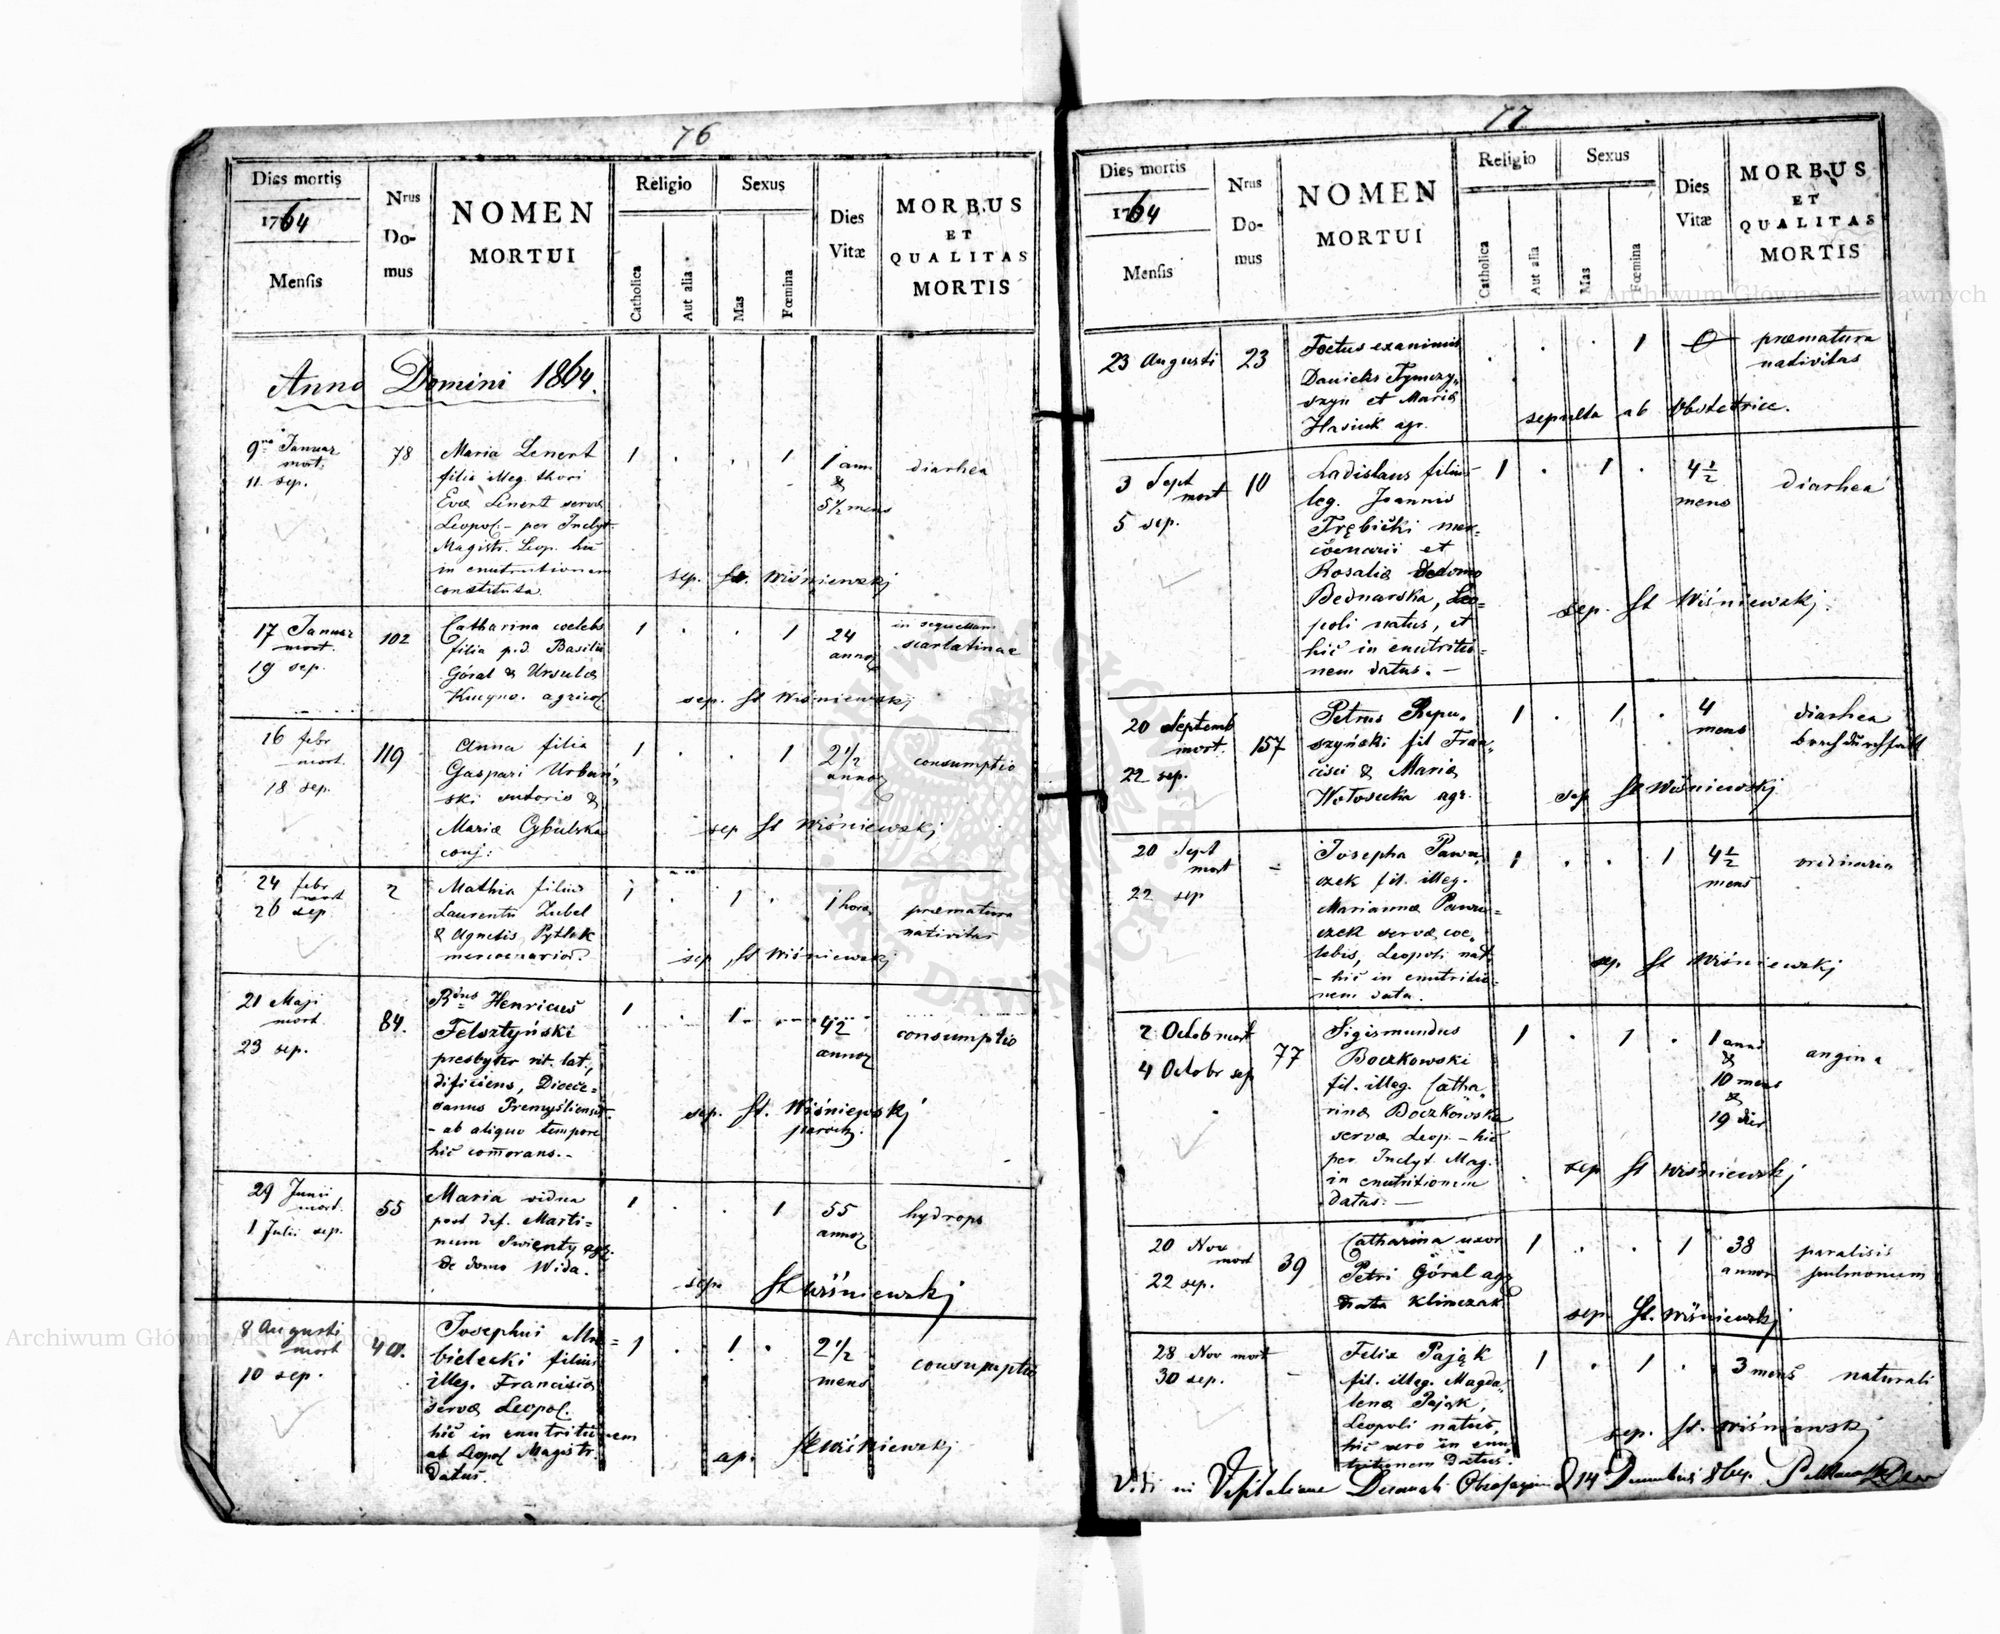 76
Dies mortis
1764
Mensis
Nrus
Do-
mus
NOMEN
MORTUI
Religio
Catholica
Aut alia
Sexus
Mas
Fœmina
Dies
Vitæ
MORBUS
ET
QUALITAS
MORTIS
Anno Domini 1864.
9na Januar
mort.
11. sep.
78
Maria Lenert
filia illeg. thori
Eva Lenert serva
Leopol. - per Inclyt
Magistr. Leop. hic
in enutritionem
constituta.
1 . . 1
1 ann
&
5 1/2 mens
diarhea
sep. St. Wiśniewskj
17 Januar
mort.
19 sep.
102
Catharina coelebs
filia p.d. Basilii
Góral & Ursula
agricol
1 . . 1
24
annor
in sequellam
scarlatinae
sep. St Wiśniewskj
16 febr
mort.
18 sep.
119
Anna filia
Gaspari Urbań„
ski sutoris &
Maria Cybulska
conj:
1 . . 1
2 1/2
annor
consumptio
sep St Wiśniewskj
24 febr
mort
26 sep
2
Mathia filius
Laurentii Zubel
& Agnetis Pytlak
mercenarior.
1 . 1 .
1 hora
præmatura
nativitas
sep, St Wiśniewskj
21 Maji
mort.
23 sep.
84.
Rdus Henricus
Felsztyński
presbyter rit. lat.,
dificiens, Dioece=
sanus Premysliensis.
- ab aliquo tempore
hic comorans.-
1 . 1 .
42
annor
consumptio
sep. St. Wiśniewskj
paroch.
29 Junii
mort.
1 Julii sep.
55
Maria vidua
post def. Marti=
num Swienty agr.
de domo Wida.
1 . . 1
55
annor
hydrops
sep. St Wiśniewskj
8 Augusti
mort
10 sep.
40.
Josephus
bielecki filius
illeg. Francisca
serva Leopol.
hic in enutritionem
ab Leopol Magistr.
datus.
1 . 1 .
2 1/2
mens
consumptio
sep. St Wiśniewskj
77
Dies mortis
1764
Mensis
Nrus
Do-
mus
NOMEN
MORTUI
Religio
Catholica
Aut alia
Sexus
Mas
Fœmina
Dies
Vitæ
MORBUS
ET
QUALITAS
MORTIS
23 Augusti
23
Foetus exanimis
Danielis Tymczy„
szyn et Maria
Hasiuk agr.
. . . 1
0
præmatura
nativitas
sepulta ab Obstetrice.
3 Sept
mort
5 sep.
10
Ladislaus filius
leg. Joannis
Trębicki mer=
cenarii et
Rosalia de domo
Bednarska, Leo=
poli natus, et
hic in enutritio=
nem datus. -
1 . 1 .
4 1/2
mens
diarhea
sep. St Wiśniewskj.
20 Septemb
mort.
22 sep.
157
Petrus Repu„
szyński fil Fran„
cisci & Maria
Wołosecka agr.
1 . 1 .
4
mens
diarhea
brechdurchfall
sep St Wiśniewskj
20 Sept
mort
22 sep
-
Josepha Pawu„
czek fil. illeg.
Marianna Pawu=
czek serva coe„
lebis, Leopoli nat.
- hic in enutritio=
nem data.
1 . . 1
4 1/2
mens
ordinaria
sep. St Wiśniewskj
2 Octob mort
4 Octobr sep
77
Sigismundus
Boczkowski
fil. illeg. Catha„
rina Boczkowska
serva Leop. - hic
per Inclyt. Mag.
in enutritionem
datus. -
1 . 1 .
1 anni
&
10 mens
&
19 dier
angina
sep St Wiśniewskj
20 Nov
mort
22 sep.
39
Catharina uxor
Petri Góral agr
nata Klimczak
1 . . 1
38
annor
paralisis
pulmonum
sep St. Wiśniewskj
28 Nov mort
30 sep.
-
Felix Pająk
fil. illeg. Magda„
lena Pająk,
Leopoli natus,
hic vero in enu„
tritionem datus.
1 . 1 .
3 mens
naturali
sep. St. Wiśniewskj
Vidi in Visitatione Decanali 14 Decembris 864.
Archiwum Główne Akt Dawnych
Archiwum Główne Akt Dawnych
ARCHIWUM GŁÓWNE AKT DAWNYCH